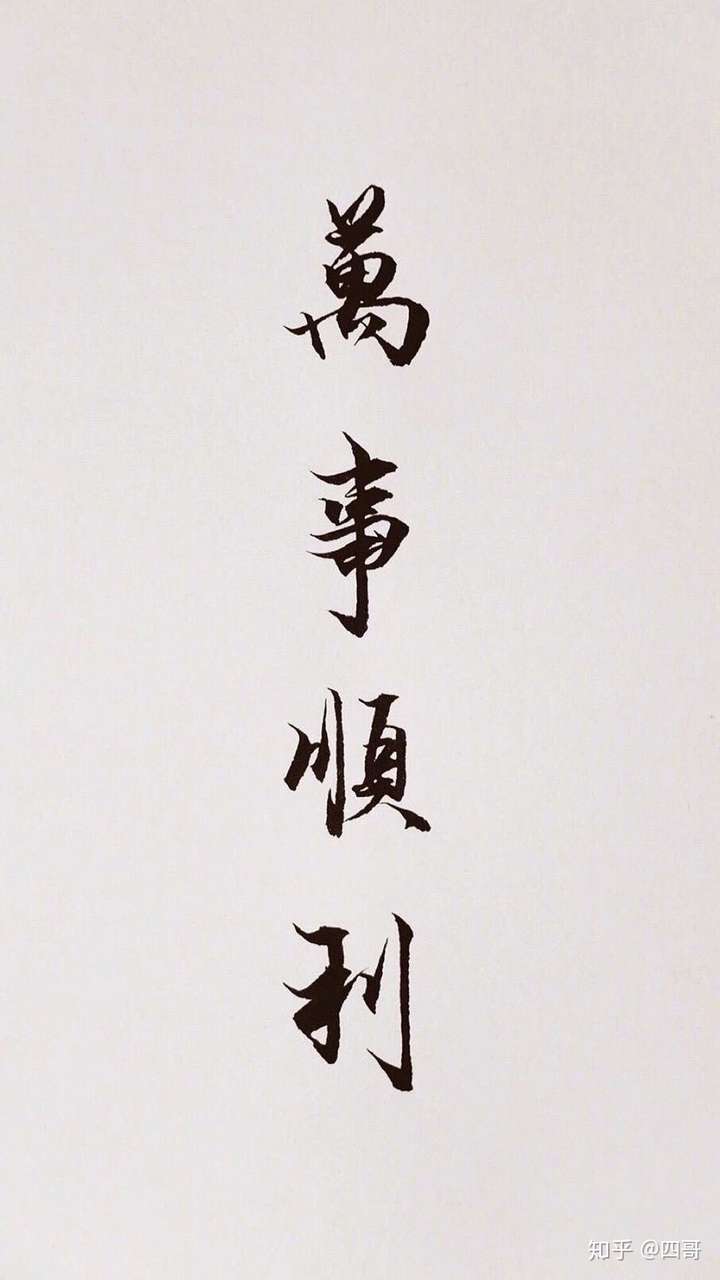 萬事順利
知乎 @四哥